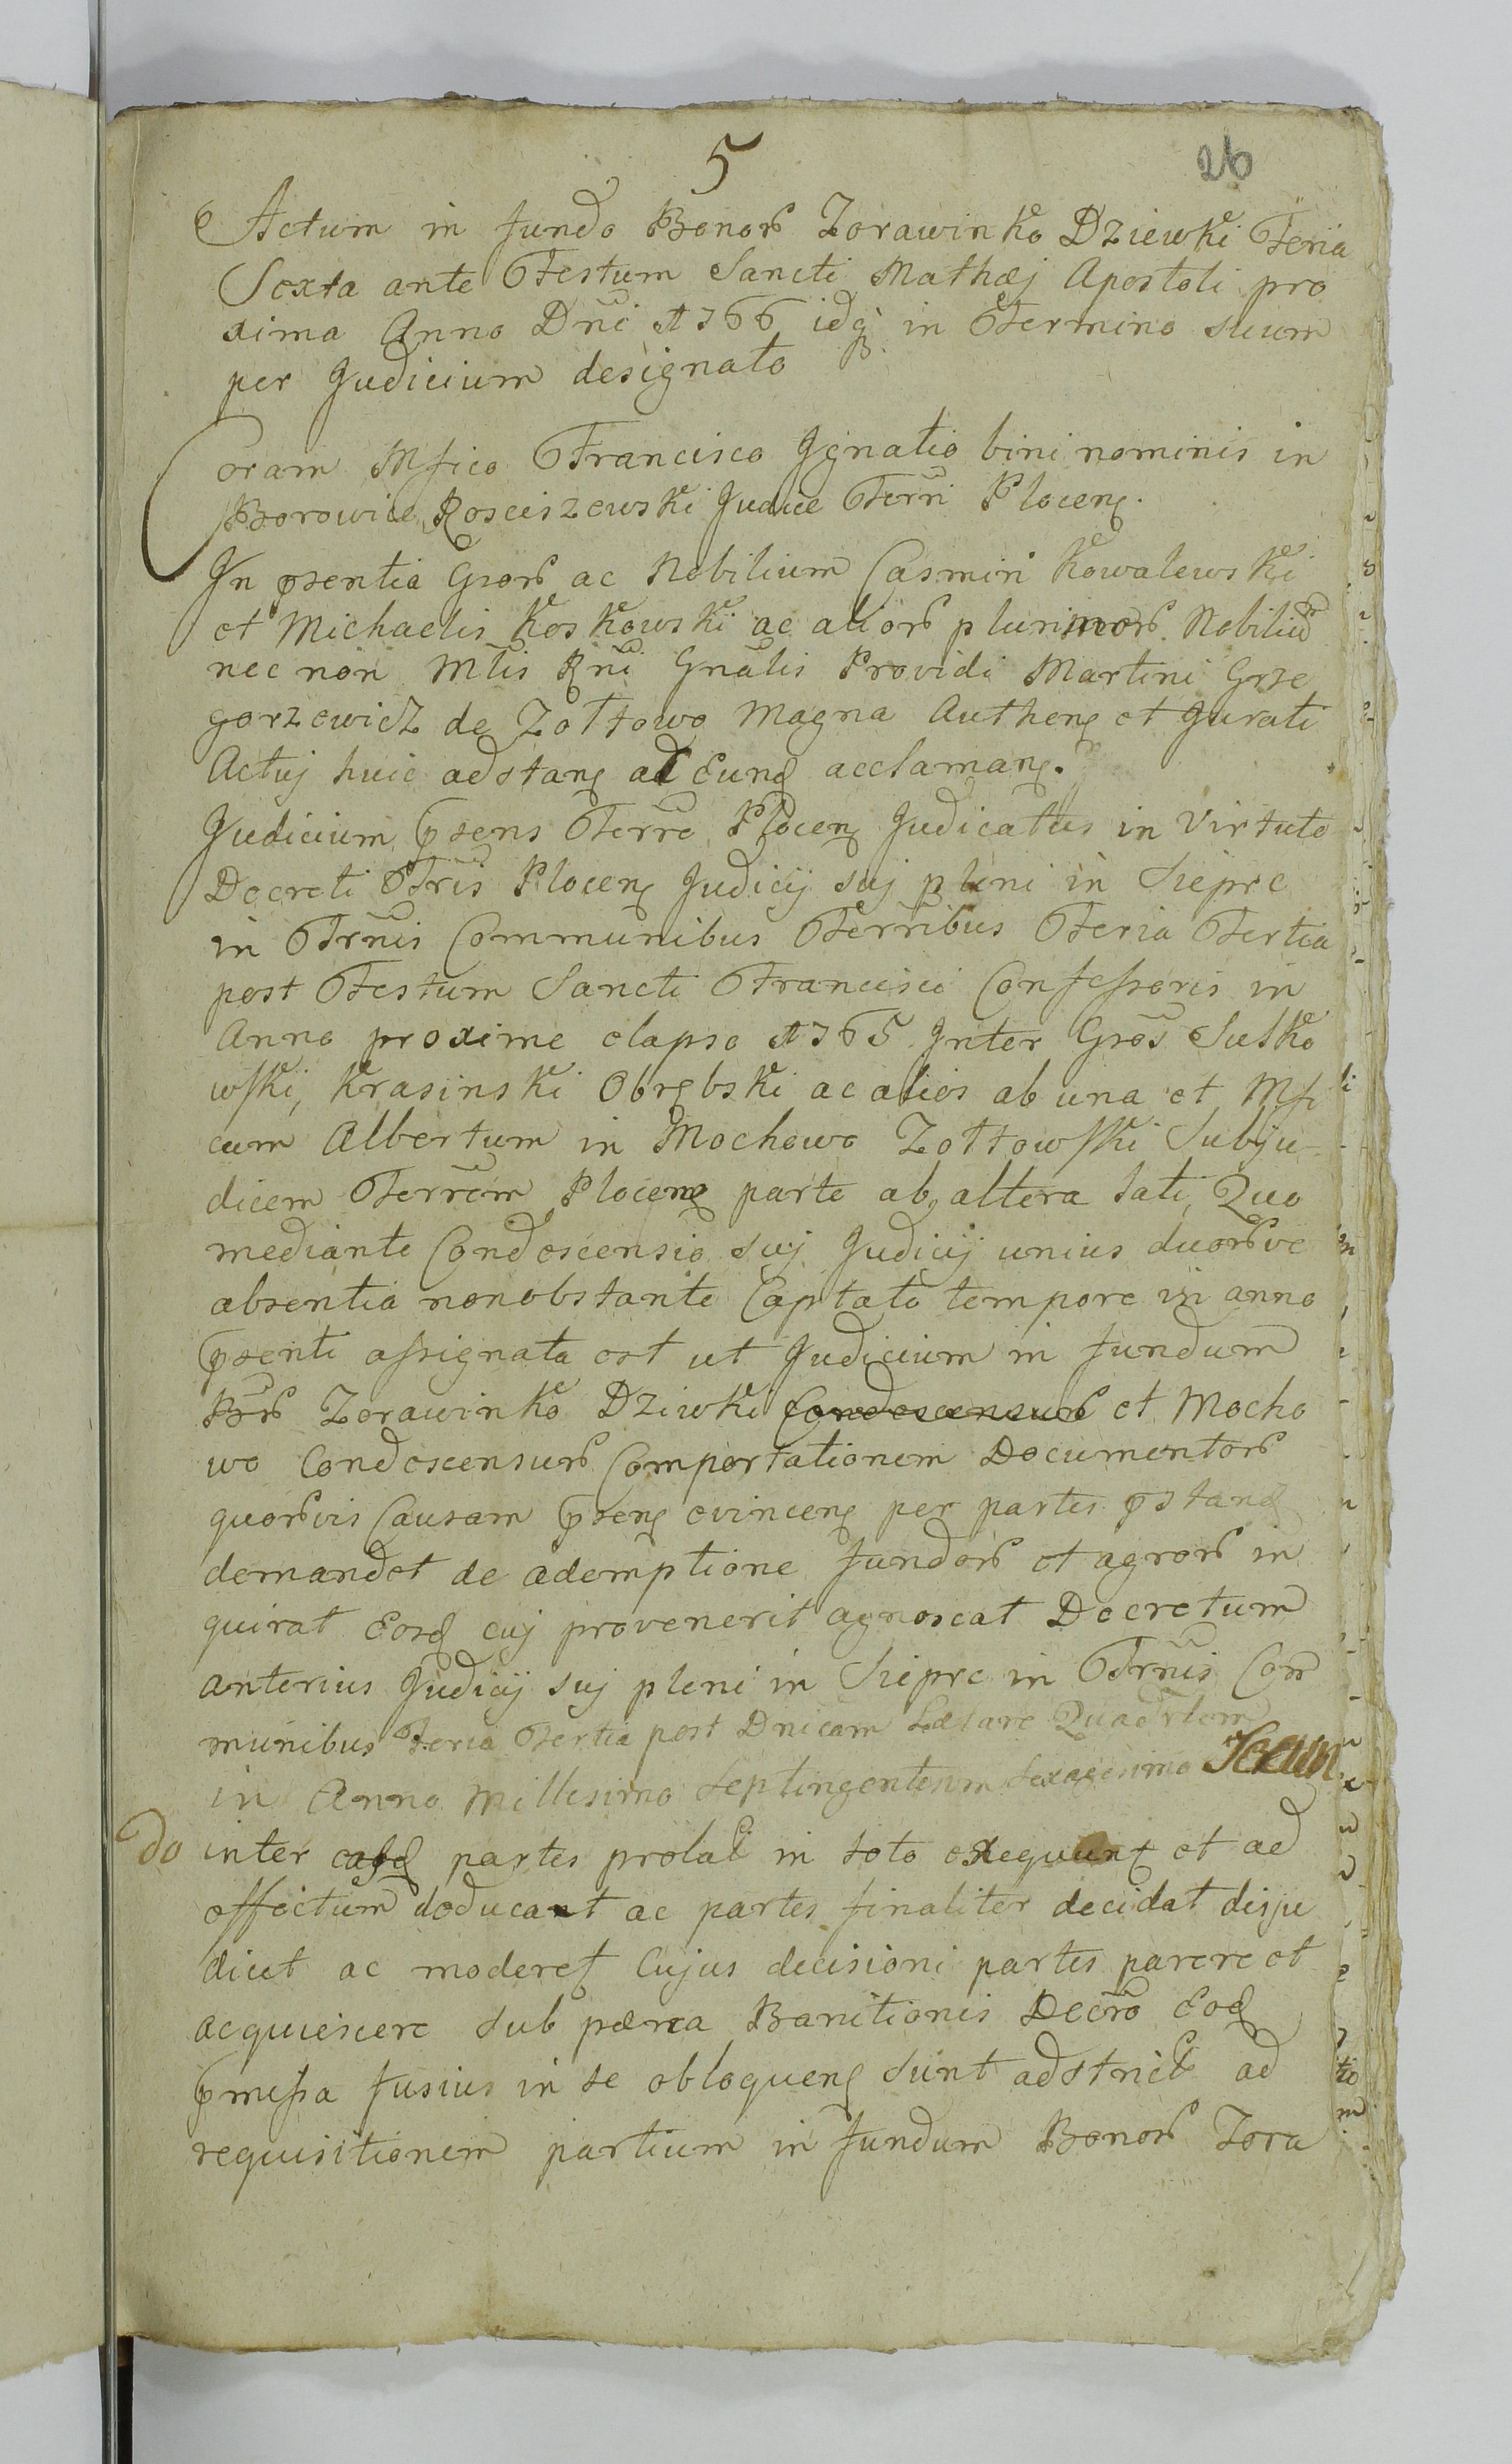 5
26
Actum in fundo Bonorũ Zorawinko Dziewki Feria
Sexta ante Festum Sancti Mathæj Apostoli pro
xima Anno Dnĩ 1766 idq̀ in Termino suum
per Judicium designato
Coram Mfico Francisco Jgnatio bini nominis in
Borowice Rosciszewski Judice Terrĩ Plocenꝭ.
Jn p̃sentia Gsorũ ac Nobilium Casmiri Kowalewski
et Michaelis Koskowski ac aliorũ plurimorũ Nobiliũ
nec non Mlĩs Rnĩ Gnãlis Providi Martini Grze
gorzewicz de Zołtowo Magna Authenꝭ et Jurati
Actuj huic adstanꝭ ad Eunđ acclamanꝭ.
Judicium p̃sens Terrẽ Plocenꝭ Judicatus in Virtute
Decreti Tr̃is Plocenꝭ Judicij suj pleni in Sieprc
in Trñis Communibus Terrĩbus Feria Tertia
post Festum Sancti Francisci Confessoris in
Anno proxime elapso 1765 Jnter Gsõs Sulko
wski, Krasinski Obrębski ac alios ab una et Mfi
cum Albertum in Mochowo Zołtowski Subju
dicem Terrẽm Plocenꝭ parte ab altera lati, Quo
mediante Condescensio suj Judicij unius duorũve
absentia nonobstante Captato tempore in anno
p̃senti assignata est ut Judicium in fundum
Bñrũ Zorawinko Dziwki Condescensurũ et Mocho
wo Condescensurũ Comportationem Documentorũ
quorũvis Causam p̃senꝭ evincenꝭ per partes p̃stanđ
demandet de ademptione fundorũ et agrorũ in
quirat Eosđ cuj provenerit agnoscat Decretum
anterius Judicij suj pleni in Sieprc in Trñis Com
munibus Feria Tertia post Dnicam Lætare Quadr̃lem
in Anno Millesimo Septingentesim Sexagesimo Secun
do inter easđ partes prolat̃ in toto exequant et ad
effectum deducant ac partes finaliter decidat diju
dicet ac moderet Cujus decisioni partes parere et
acquiescere sub pœna Banitionis Decr̃o Eođ
p̃missa fusius in se obloquenꝭ sunt adstrictæ ad
requisitionem partium in fundum Bonorũ Zora